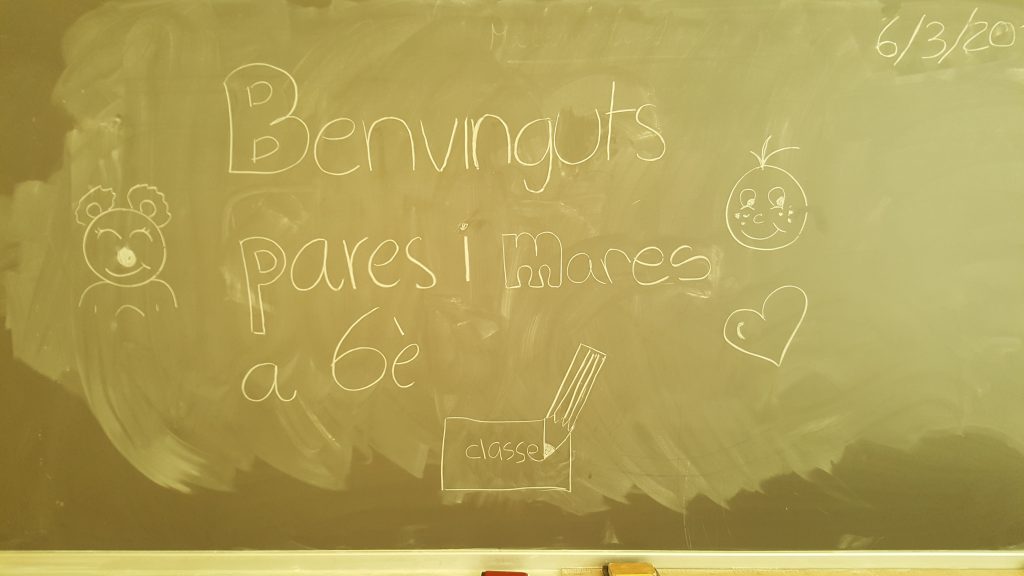 6/3/20
Benvinguts
pares i mares
a 6è
classe